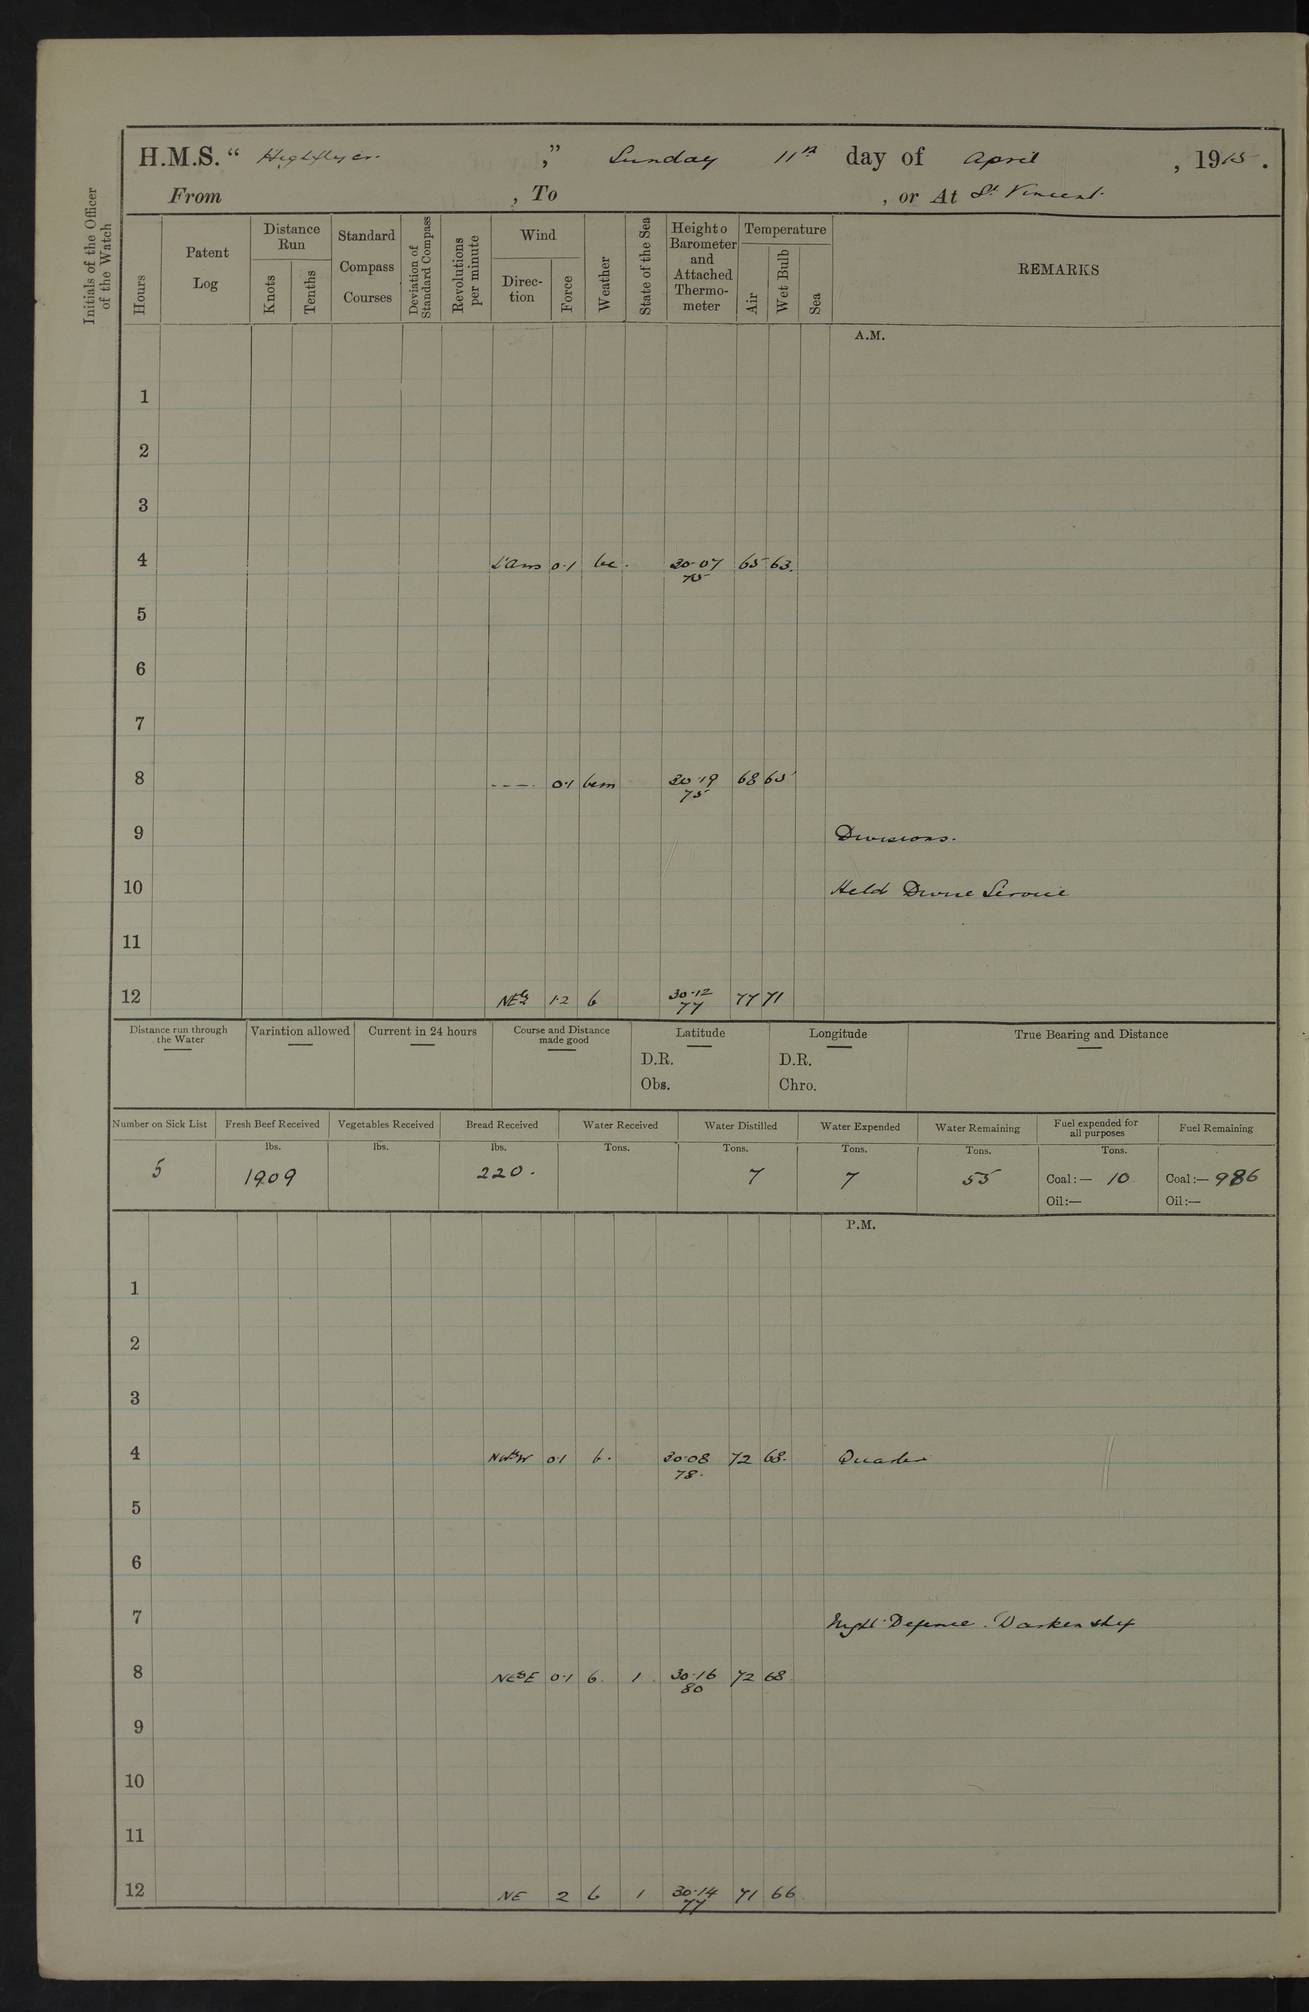 H.M.S. “ Highflyer. ,” Sunday 11th day of April , 1915 .
From , To , or At St Vincent.
Initials of the Officer of the Watch
Hours
Patent Log
Distance Run
Knots
Tenths
Standard Compass Courses
Deviation of Standard Compass
Revolutions per minute
Wind
Direc-tion
Force
Weather
State of the Sea
Height o Barometer and Attached Thermo-meter
Temperature
Air
Wet Bulb
Sea
REMARKS
A.M.
1
2
3
4 L'Airs 0.1 bc. 30.07 65 63.
75
5
6
7
8 - - - . 0.1 bcm 30.19 68 65
75
9 Divisions.
10 Held Divine Service
11
12 NEly 1.2 b 30.12 77 71
77
Distance run through the Water
Variation allowed
Current in 24 hours
Course and Distance made good
Latitude
D.R.
Obs.
Longitude
D.R.
Chro.
True Bearing and Distance
Number on Sick List Fresh Beef Received Vegetables Received Bread Received Water Received Water Distilled Water Expended Water Remaining Fuel expended for all purposes Fuel Remaining
lbs. lbs. lbs. Tons. Tons. Tons. Tons. Tons.
5 1909 220. 7 7 55 Coal:— 10 Coal:— 986
Oil:— Oil:—
P.M.
1
2
3
4 NWbW 0.1 b. 30.08 72 68. Quarters
78.
5
6
7 Night Defence. Darken ship
8 NEbE 0.1 b. 1. 30.16 72 68
80
9
10
11
12 NE 2 b 1 30.14 71 66
77